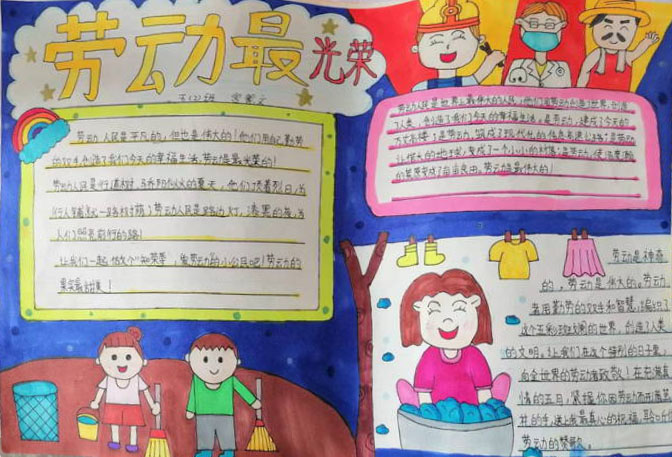 劳动最光荣
五(2)班
劳动人民是平凡的，但也是伟大的！他们用自己勤劳
的双手创造了我们今天的幸福生活，劳动是最光荣的！
劳动人民是行道树，当炎阳似火的夏天，他们顶着烈日，为
行人带来一路的阴凉；劳动人民是路边灯，漆黑的夜，为
人们照亮前行的路！
让我们一起做个"知荣辱，爱劳动的小公民吧！劳动的
果实最甜美！
劳动人民是世界上最伟大的人民，他们用劳动创造了世界，创造
了人类，创造了我们今天的幸福生活；是劳动，建成了今天的
万丈高楼；是劳动，筑成了现代化的信息高速公路；是劳动
让偌大的地球，变成了一个小小的村落；是劳动，使浩瀚
的荒原变成了亩亩良田。劳动是最伟大的！
劳动是神奇
的，劳动是伟大的。劳动
者用勤劳的双手和智慧，编织了
这个五彩斑斓的世界，创造了人类
的文明。让我们在这个特别的日子里
向全世界的劳动者致敬！在充满真
情的五月，紧握你因劳动而满茧
的手，送上我最真心的祝福，
劳动的赞歌。